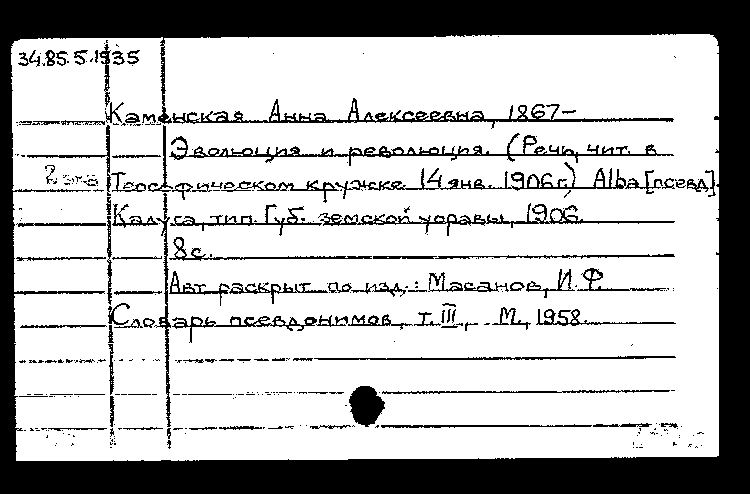 34.85.5.1935
Каменская Анна Алексеевна, 1867–
Эволюция и революция. (Речь, чит. в
2 экз Теософическом кружке 14 янв. 1906 г.) Alba [псевд].
Калуга, тип. Губ. земской управы, 1906.
8 с.
Авт. раскрыт по изд.: Масанов, И.Ф.
Словарь псевдонимов, т. III, М., 1958.